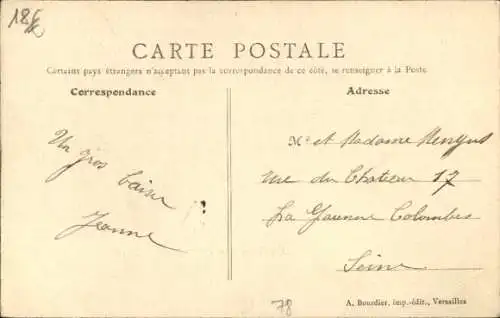 18f
CARTE POSTALE
Certains pays étrangers n'acceptant pas la correspondance de ce côté, se renseigner à la Poste
Correspondance
Un gros baiser
Jeanne
Adresse
Mr et Madame
rue du Chateau 17
La Garenne Colombes
Seine
78
A. Bourdier, imp.-édit., Versailles